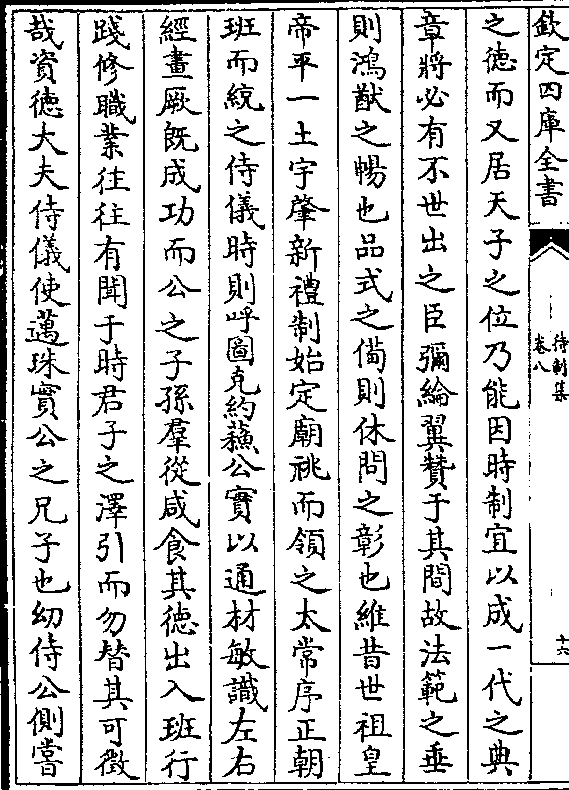 欽定四庫全書
待制集
卷八
十六
之德而又居天子之位乃能因時制宜以成一代之典
章將必有不世出之臣彌綸翼贊于其間故法範之垂
則鴻猷之暢也品式之備則休問之彰也維昔世祖皇
帝平一土宇肇新禮制始定廟祧而領之太常序正朝
班而統之侍儀時則呼圖克約蘓公實以通材敏識左右
經畫厥既成功而公之子孫羣從咸食其德出入班行
踐修職業往往有聞于時君子之澤引而勿替其可徵
哉資德大夫侍儀使邁珠實公之兄子也幼侍公側嘗